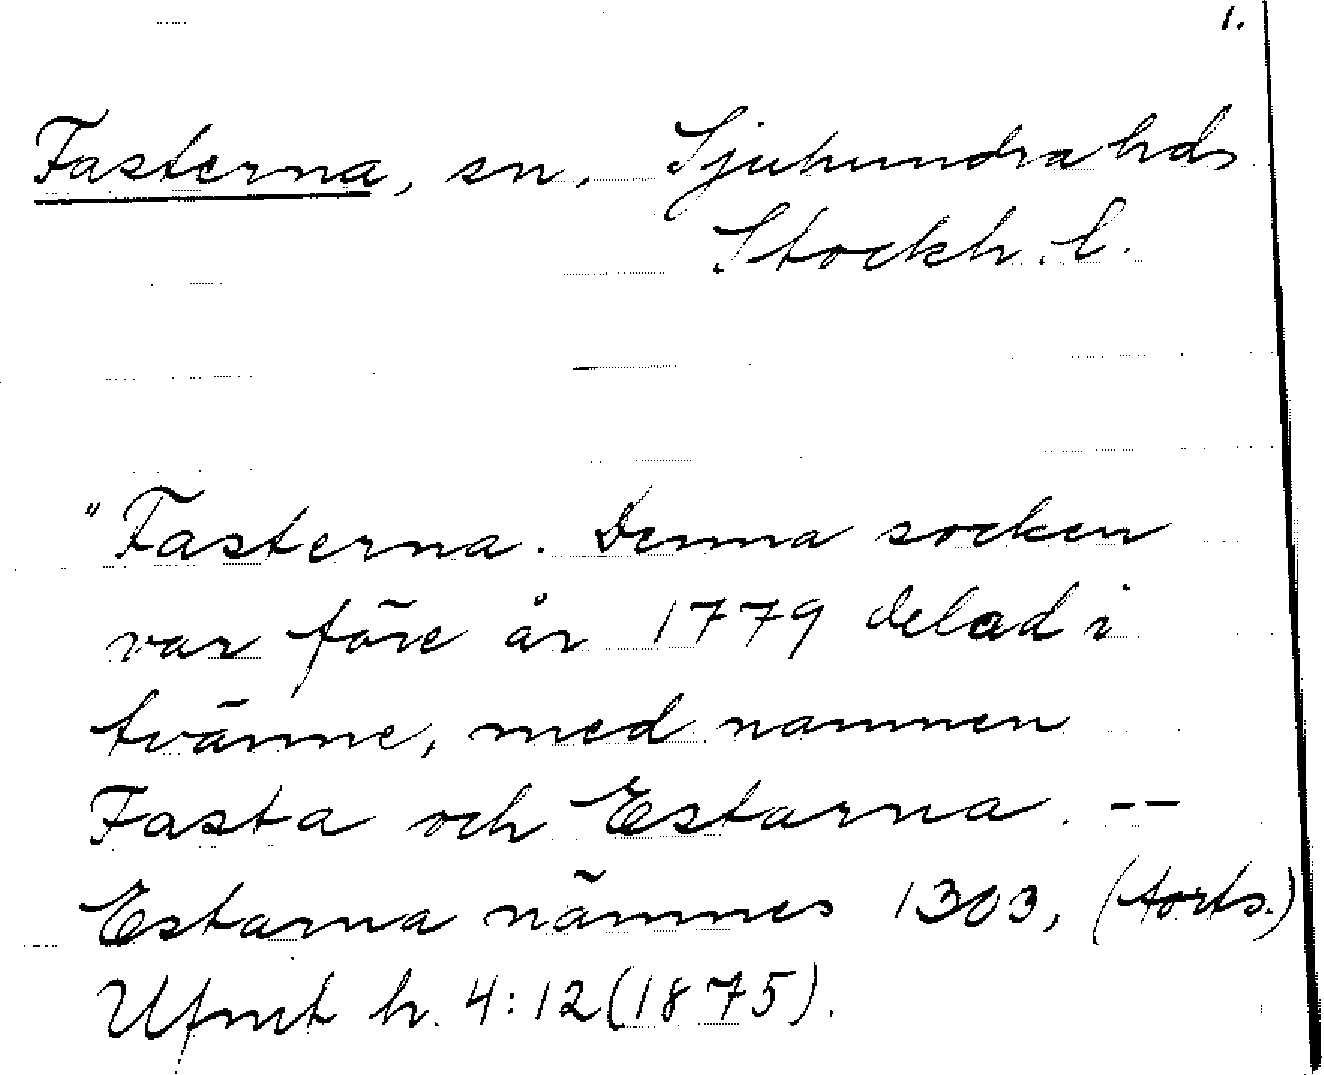 1.
Fasterna, sn. Sjuhundra hds
Stockh. l.
"Fasterna. Denna socken
var före år 1779 delad i
tvänne, med namnen
Fasta och Estarna. --
Estarna nämnes 1303, (forts.)
Ufmt h. 4:12 (1875).